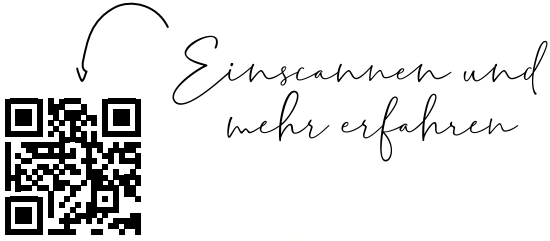 Einscannen und
mehr erfahren